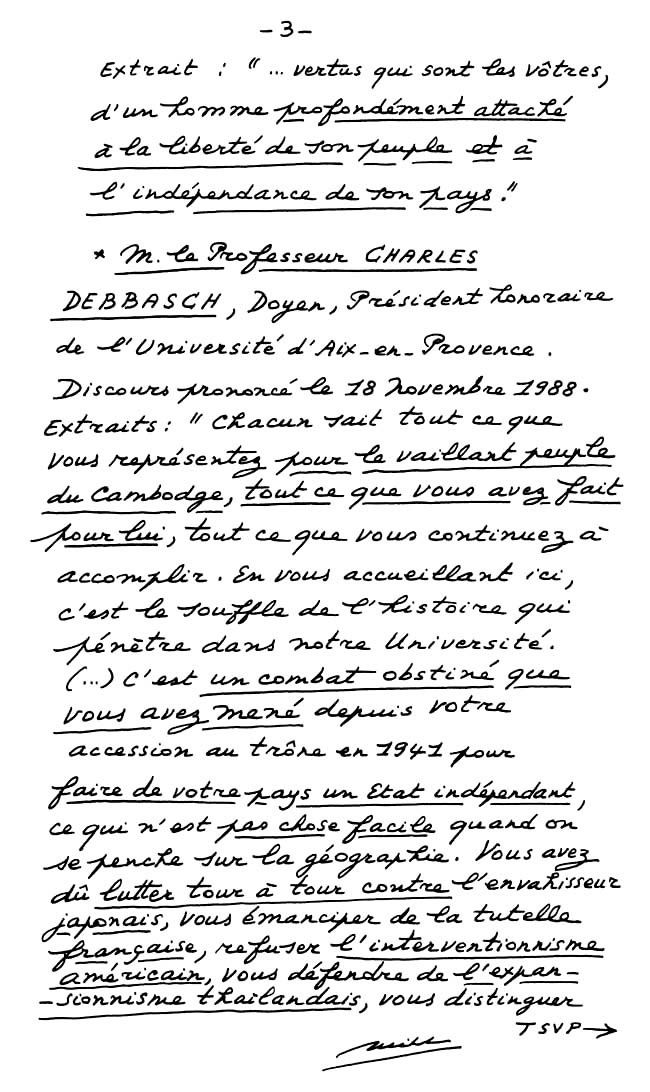 -3-
Extrait : "... vertus qui sont les vôtres,
d'un homme profondément attaché
à la liberté de son peuple et à
l'indépendance de son pays."
* M. le Professeur CHARLES
DEBBASCH, Doyen, Président honoraire
de l'Université d'Aix-en-Provence.
Discours prononcé le 18 Novembre 1988.
Extraits : " Chacun sait tout ce que
vous représentez pour le vaillant peuple
du Cambodge, tout ce que vous avez fait
pour lui, tout ce que vous continuez à
accomplir. En vous accueillant ici,
c'est le souffle de l'histoire qui
pénètre dans notre Université.
(...) C'est un combat obstiné que
vous avez mené depuis votre
accession au trône en 1941 pour
faire de votre pays un Etat indépendant,
ce qui n'est pas chose facile quand on
se penche sur la géographie. Vous avez
dû lutter tour à tour contre l'envahisseur
japonais, vous émanciper de la tutelle
française, refuser l'interventionnisme
américain, vous défendre de l'expan-
-sionnisme thaïlandais, vous distinguer
TSVP→